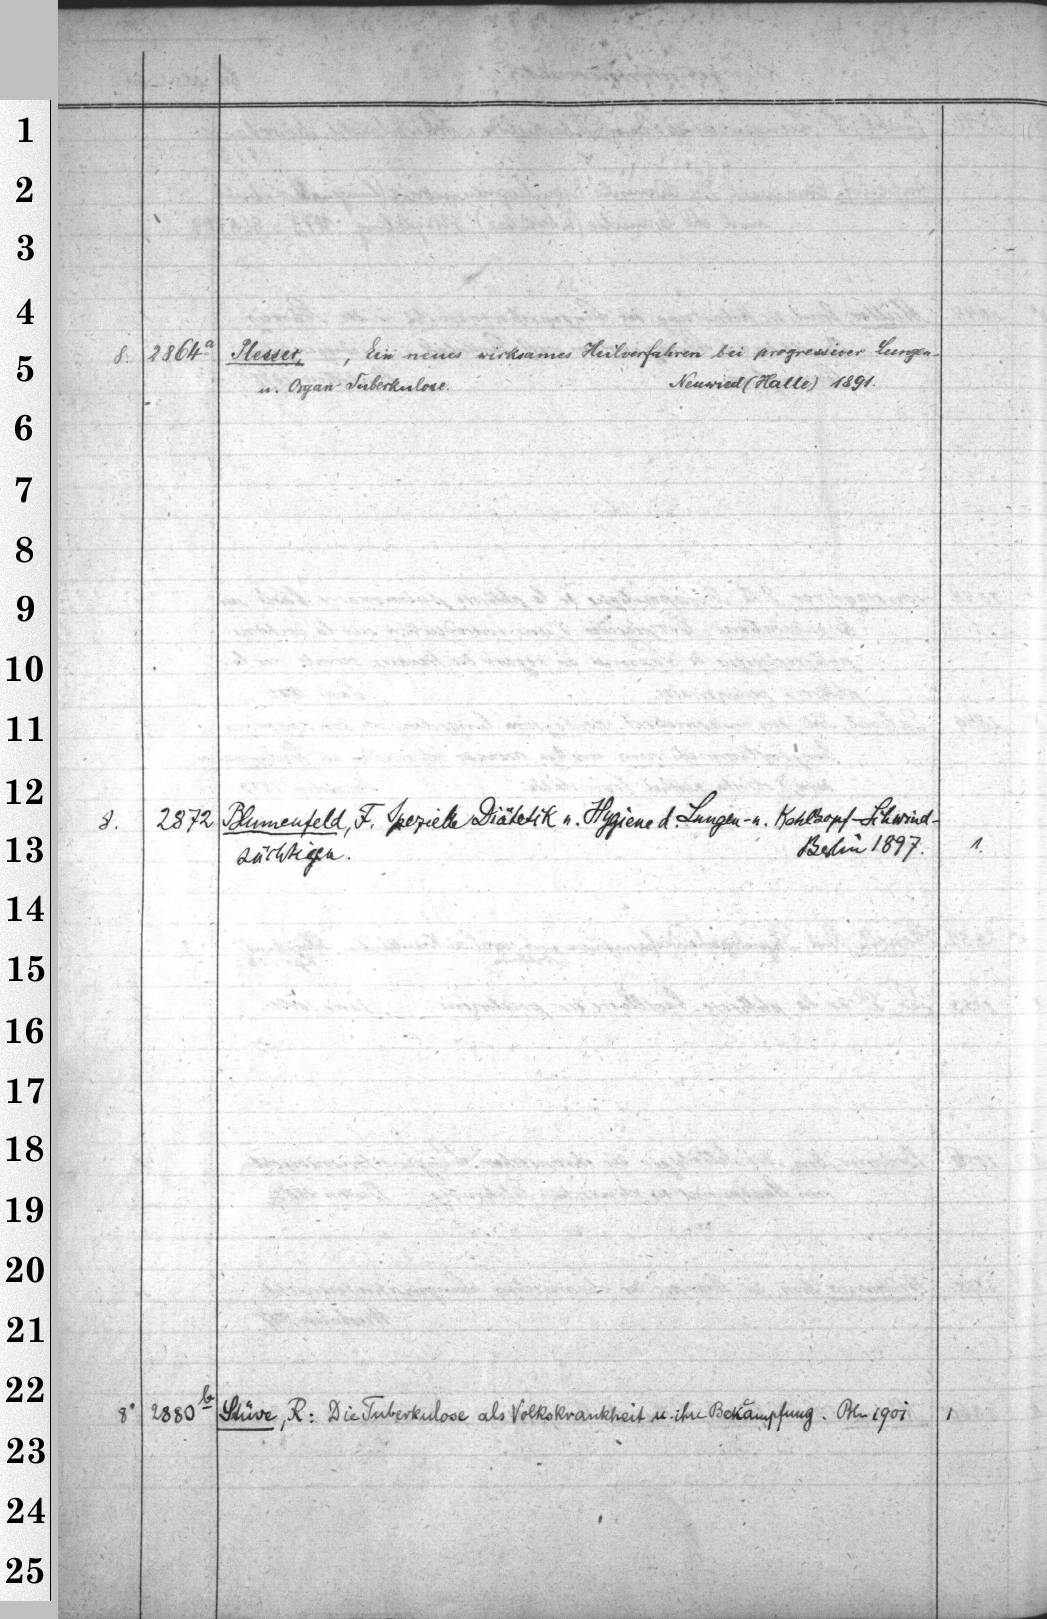 1
2
3
4
8. 2864a Plesser, , Ein neues wirksames Heilverfahren bei progressiver Lungen-
5
u. Organ-Tuberkulose. Neuwied (Halle) 1891.
6
7
8
9
10
11
12
8. 2872 Blumenfeld, F. Spezielle Diätetik u. Hygiene d. Lungen- u. Kehlkopf-Schwind-
13
süchtigen. Berlin 1897. 1.
14
15
16
17
18
19
20
21
22
8° 2880b Stüve, R: Die Tuberkulose als Volkskrankheit u. ihre Bekämpfung. Bln 1901 1
23
24
25